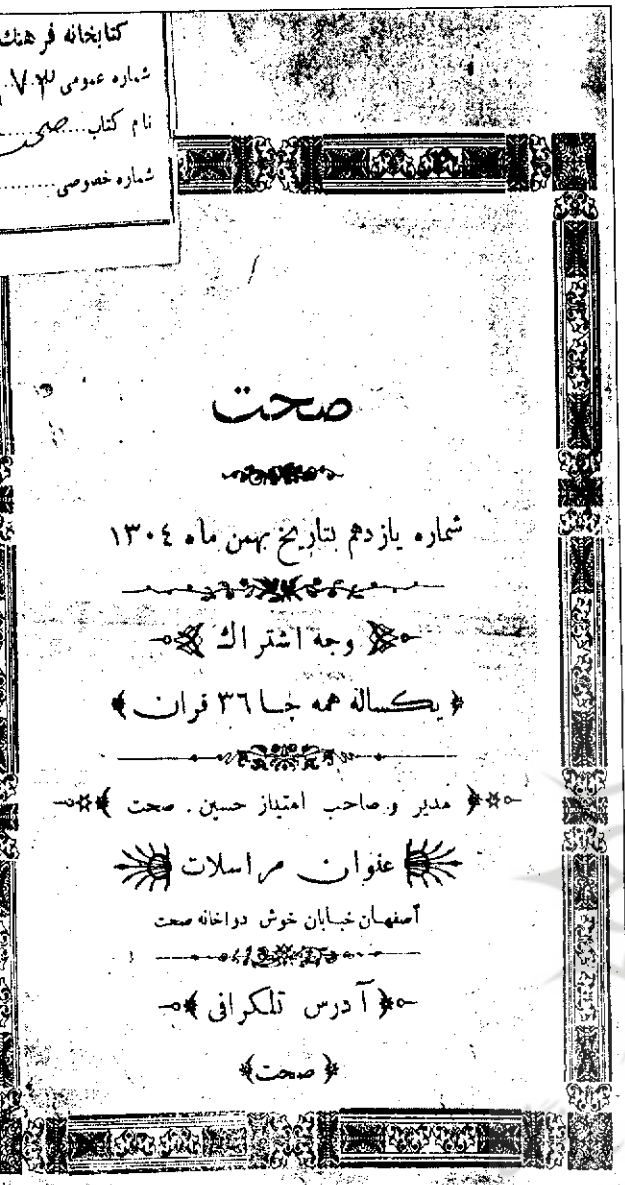 کتابخانه فرهنك
شماره عمومی
نام کتاب صحت
شماره خصوصی
صحت
شماره یازدهم بتاریخ بهمن ماه ۱۳۰٤
وجه اشتراك
﴿ یکساله همه جا ۳٦ قران ﴾
﴿ مدیر و صاحب امتیاز حسین . صحت ﴾
عنوان مراسلات
آصفهان خیابان خوش دواخانه صحت
﴿ آدرس تلکرافی ﴾
﴿ صحت ﴾